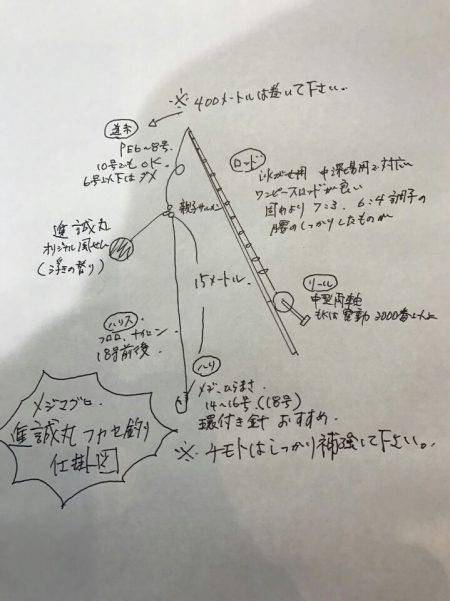 ※ 400メートルは巻いて下さい。
道糸
PE6〜8号。
10号でもOK。
6号以下はダメ
ロッド
泳がせ用 中深場用で対応
ワンピースロッドが良い
7:3. 6:4調子の
腰のしっかりしたものが
親子サルカン
進誠丸
オリジナル
(浮きの替り)
15メートル.
リール
中型両軸
電動 3000番以上
ハリス
フロロ、ナイロン
18号前後.
ハリ
メジ、ひらまさ.
14〜16号.(18号)
環付き針 おすすめ.
※ チモトはしっかり補強して下さい。
メジマグロ.
進誠丸フカセ釣り
仕掛図